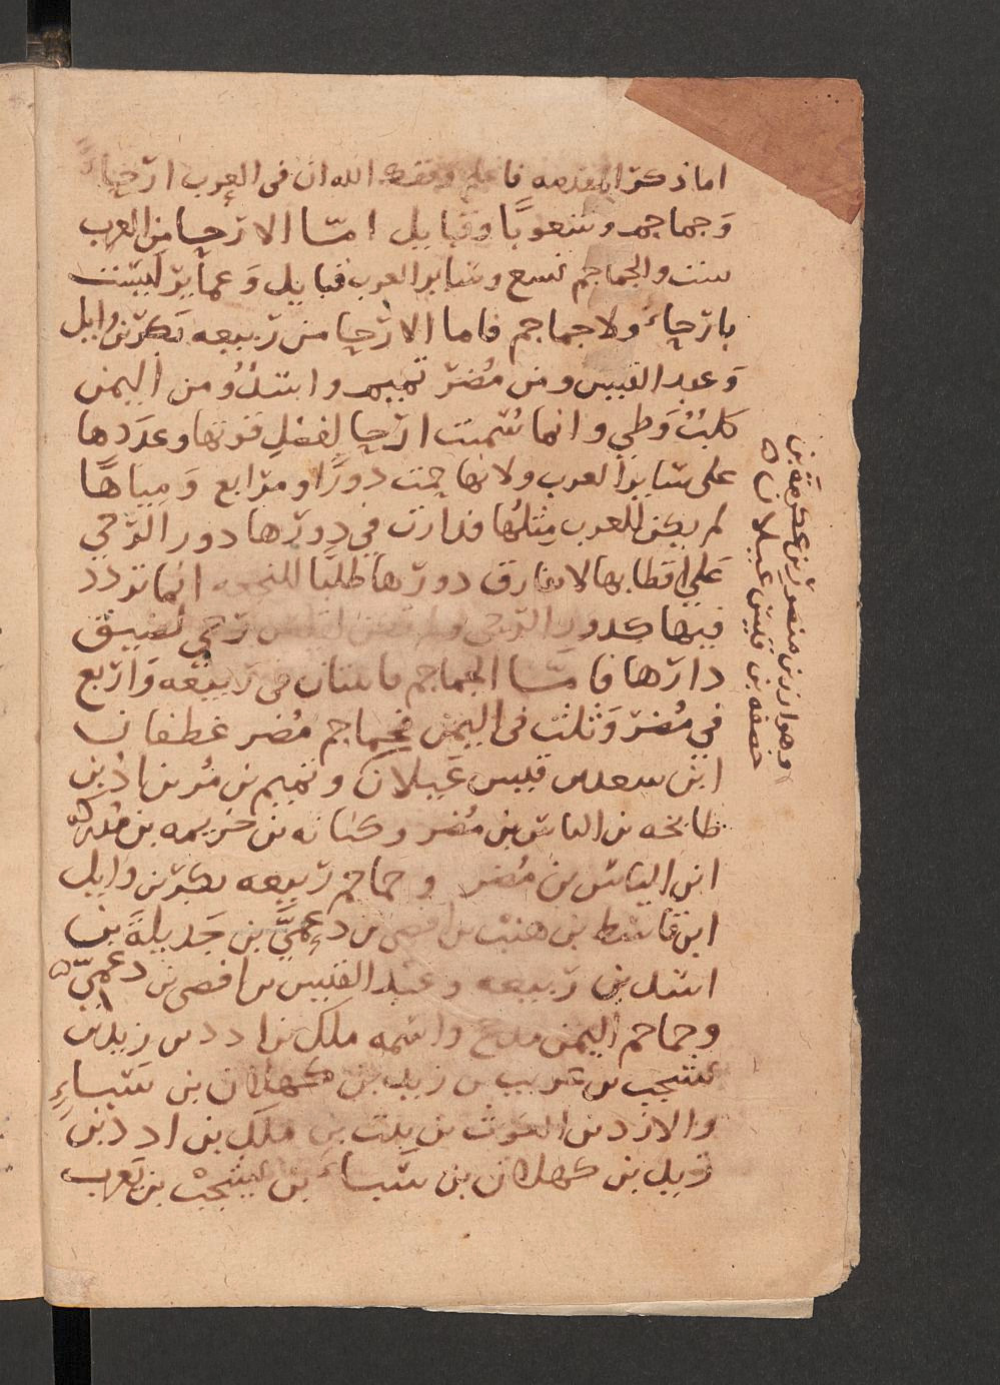 اما ذكر المقدمه فاعلم وفقك الله ان في العرب ارحاءً
وَجماجم وشعوبًا وقبايل امّا الارحا من العرب
ست والجماجم تسع وساير العرب قبايل وَعماير ليست
بارحاء ولا جماجم فاما الارحا من ربيعه بكر بن وايل
وَعبد القيس ومن مُضر تميم واسدٌ ومن اليمن
كلبٌ وَطي وانما سُميت ارحا لفضل قوتها وعددها
على ساير العرب ولانها حمت دورًا ومرابع وَمياهًا
لم يكن للعرب مِثلُها فدارت في دورها دور الرحي
عَلى اقطابها لا تفارق دورها طلبًا للنجعه انما تردد
فيها كدور الرحي رَحي لضيق
دارها فامّا الجماجم فاثنتان في ربيعه وَاربع
في مُضر وَثلث في اليمن فجماجم مُضر غطفان
ابن سعد بن قيس عَيلان وتميم بن مُر بن ادّ بن
طابخه بن الياس بن مُضر وكنانه بن خزيمه بن مُدركه
ابن الياس بن مُضر وجماجم ربيعه بكر بن وايل
ابن قاسط بن هنب بن افصى بن دُعمِيّ بن جَديلةَ بن
اسد بن ربيعه وعبد القيس بن افصى بن دعمِيّ
وجماجم اليمن مذحج واسمه ملك بن ادد بن زيد بن
يشجب بن عريب بن زيد بن كهلان بن سَباءٍ
والازد بن الغوث بن نبت بن ملك بن ادد بن
زيد بن كهلان بن سَباء بن يشجب بن يَعرب
وهوازن بن منصور بن عكرمَة بن
خصفه بن قيس عيلان